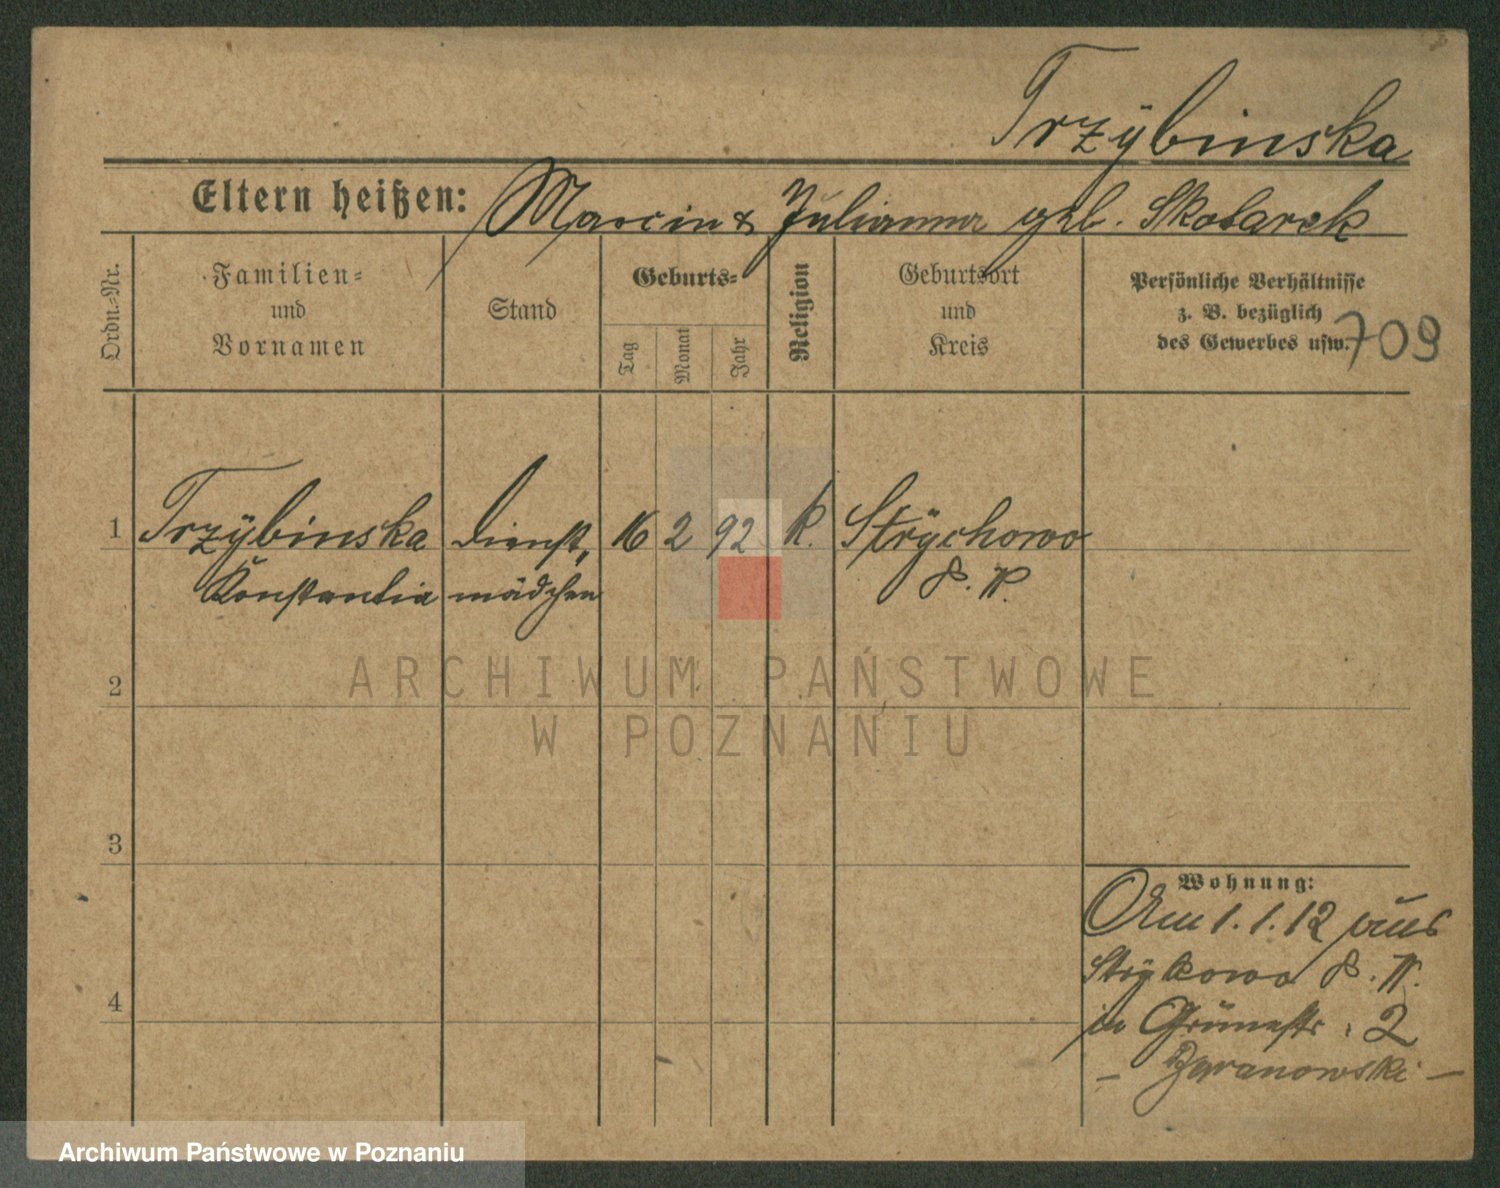 Trzÿbinska
Eltern heißen: Marcin & Julianna geb. Skotarek
Ordn.-Nr.
Familien-
und
Vornamen
Stand
Geburts-
Tag
Monat
Jahr
Religion
Geburtsort
und
Kreis
Persönliche Verhältnisse
z. B. bezüglich
des Gewerbes usw.
709
1 Trzÿbinska Dienst„ 16 2 92 k. Strÿchowo
Konstantia mädchen P. W.
2
3
4
Wohnung:
Am 1.1.12 aus
Strykowo P. W.
in Grünestr. 2
ARCHIWUM PAŃSTWOWE
W POZNANIU
Archiwum Państwowe w Poznaniu